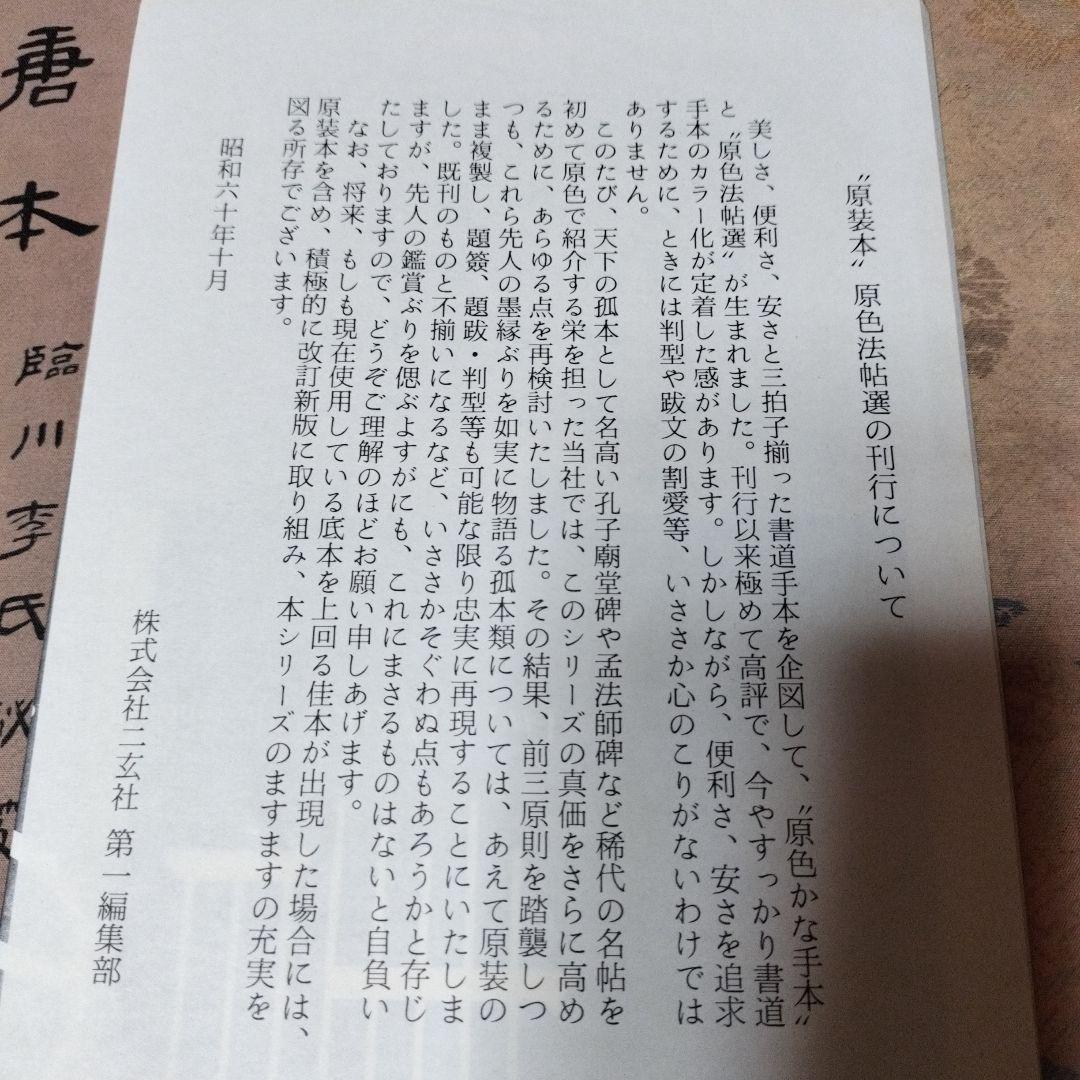 〝原装本〟原色法帖選の刊行について
美しさ、便利さ、安さと三拍子揃った書道手本を企図して、〝原色かな手本〟
と〝原色法帖選〟が生まれました。刊行以来極めて高評で、今やすっかり書道
手本のカラー化が定着した感があります。しかしながら、便利さ、安さを追求
するために、ときには判型や跋文の割愛等、いささか心のこりがないわけでは
ありません。
このたび、天下の孤本として名高い孔子廟堂碑や孟法師碑など稀代の名帖を
初めて原色で紹介する栄を担った当社では、このシリーズの真価をさらに高め
るために、あらゆる点を再検討いたしました。その結果、前三原則を踏襲しつ
つも、これら先人の墨縁ぶりを如実に物語る孤本類については、あえて原装の
まま複製し、題簽、題跋・判型等も可能な限り忠実に再現することにいたしま
した。既刊のものと不揃いになるなど、いささかそぐわぬ点もあろうかと存じ
ますが、先人の鑑賞ぶりを偲ぶよすがにも、これにまさるものはないと自負い
たしておりますので、どうぞご理解のほどお願い申しあげます。
なお、将来、もしも現在使用している底本を上回る佳本が出現した場合には、
原装本を含め、積極的に改訂新版に取り組み、本シリーズのますますの充実を
図る所存でございます。
昭和六十年十月
株式会社二玄社 第一編集部
唐本
臨川李氏